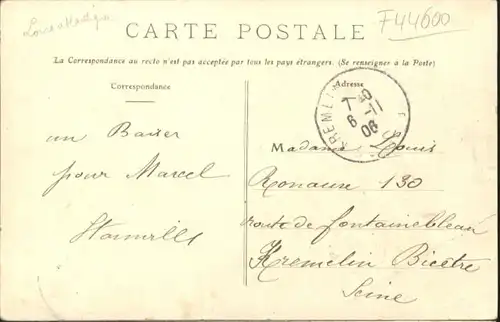 F44600
CARTE POSTALE
La Correspondance au recto n'est pas acceptée par tous les pays étrangers. (Se renseigner à la Poste)
Correspondance
Adresse
KREMLIN
6 -11
06
un Baiser
pour Marcel
Madame Louis
130
route de fontainebleau
Kremelin Bicetre
Seine